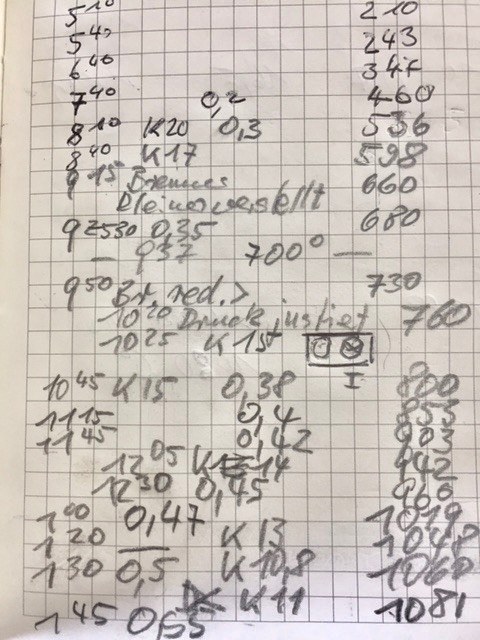 5 10 210
5 45 243
6 40 347
7 40 0,2 460
8 10 K20 0,3 536
8 40 K17 598
9 15 660
680
0,35
— 937 700° —
9 50 Br. red. > 730
10 20 Druck justiert 760
10 25 K 15
I
10 45 K 15 0,38 800
11 15 0,4 853
11 45 0,42 903
12 05 14 942
12 30 0,45
1 00 0,47 1019
1 20 K 13 1048
1 30 0,5 K 10,8 1060
K 11
1 45 0,55 1081